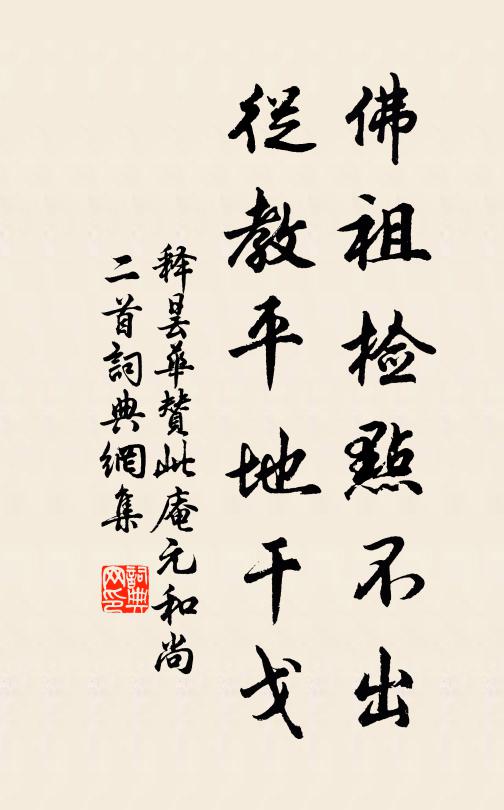 佛祖检點不出
從教平地干戈
释曇華贊此庵元和尚
二首詞典網集
詞典
网印